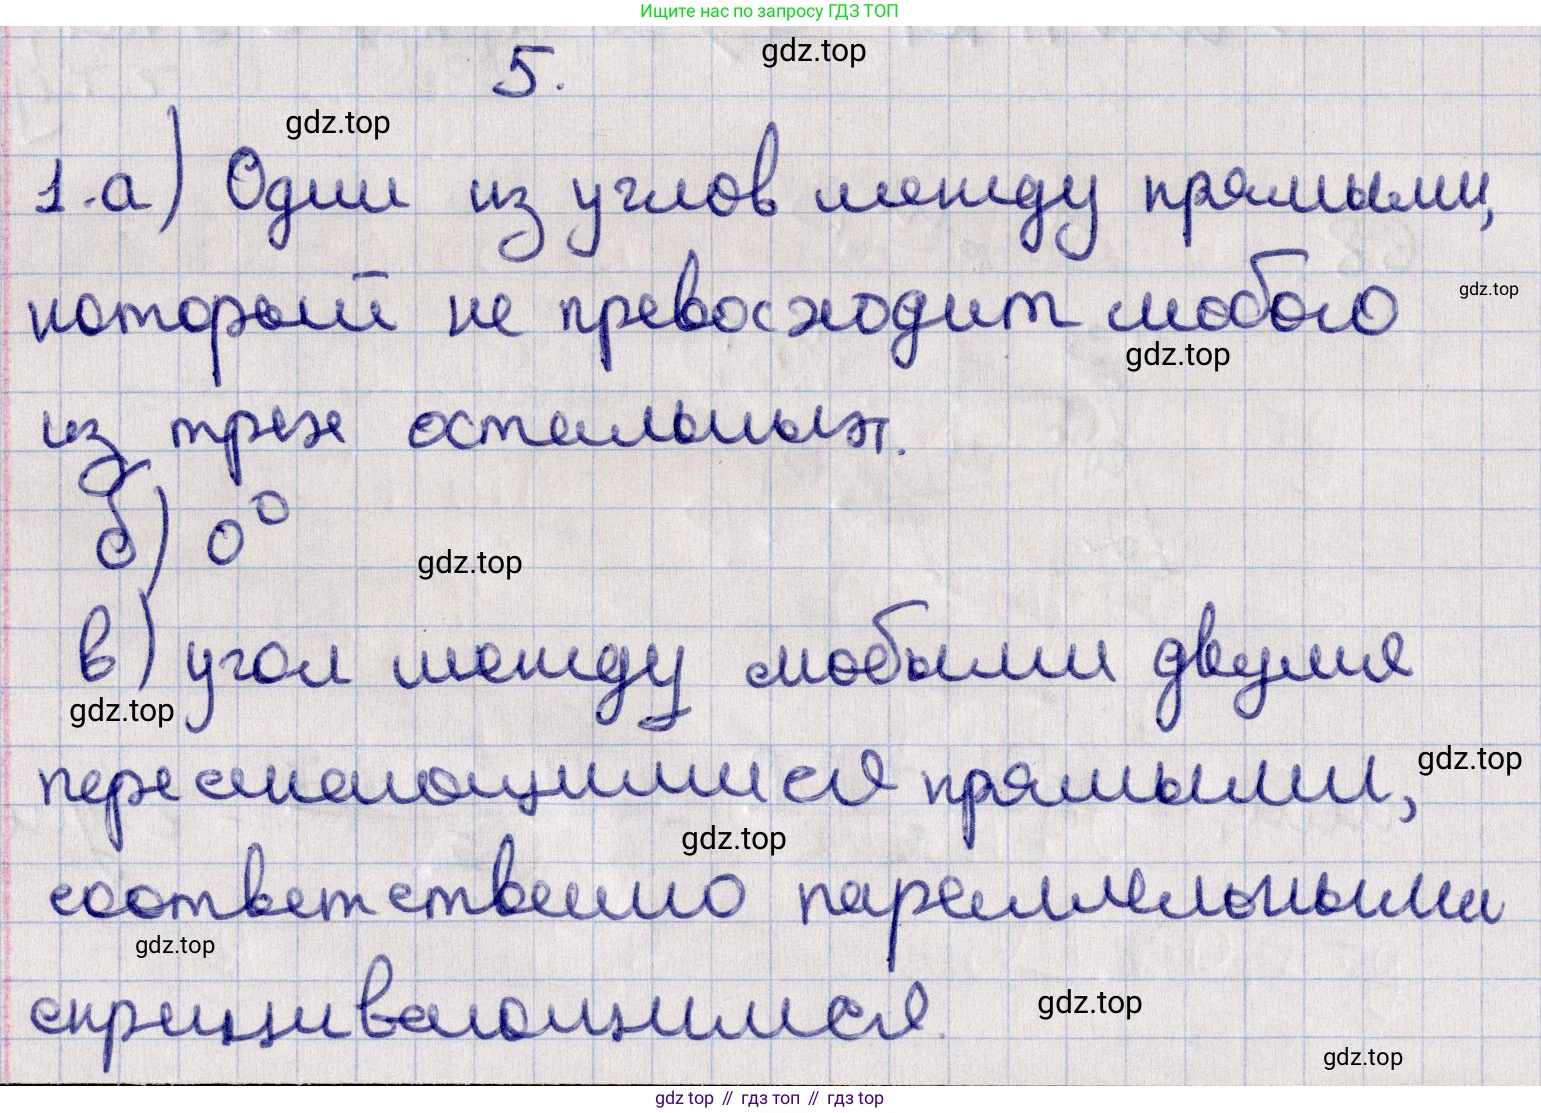 Ищите нас по запросу ГДЗ ТОП
5.
gdz.top
gdz.top
1.а) Один из углов между прямыми,
который не превосходит любого
gdz.top
gdz.top
из трех остальных.
б) 0°
gdz.top
в) угол между любыми двумя
gdz.top
пересекающимися прямыми,
gdz.top
gdz.top
соответственно параллельными
gdz.top
скрещивающимися.
gdz.top
gdz.top
gdz top // гдз топ // гдз top